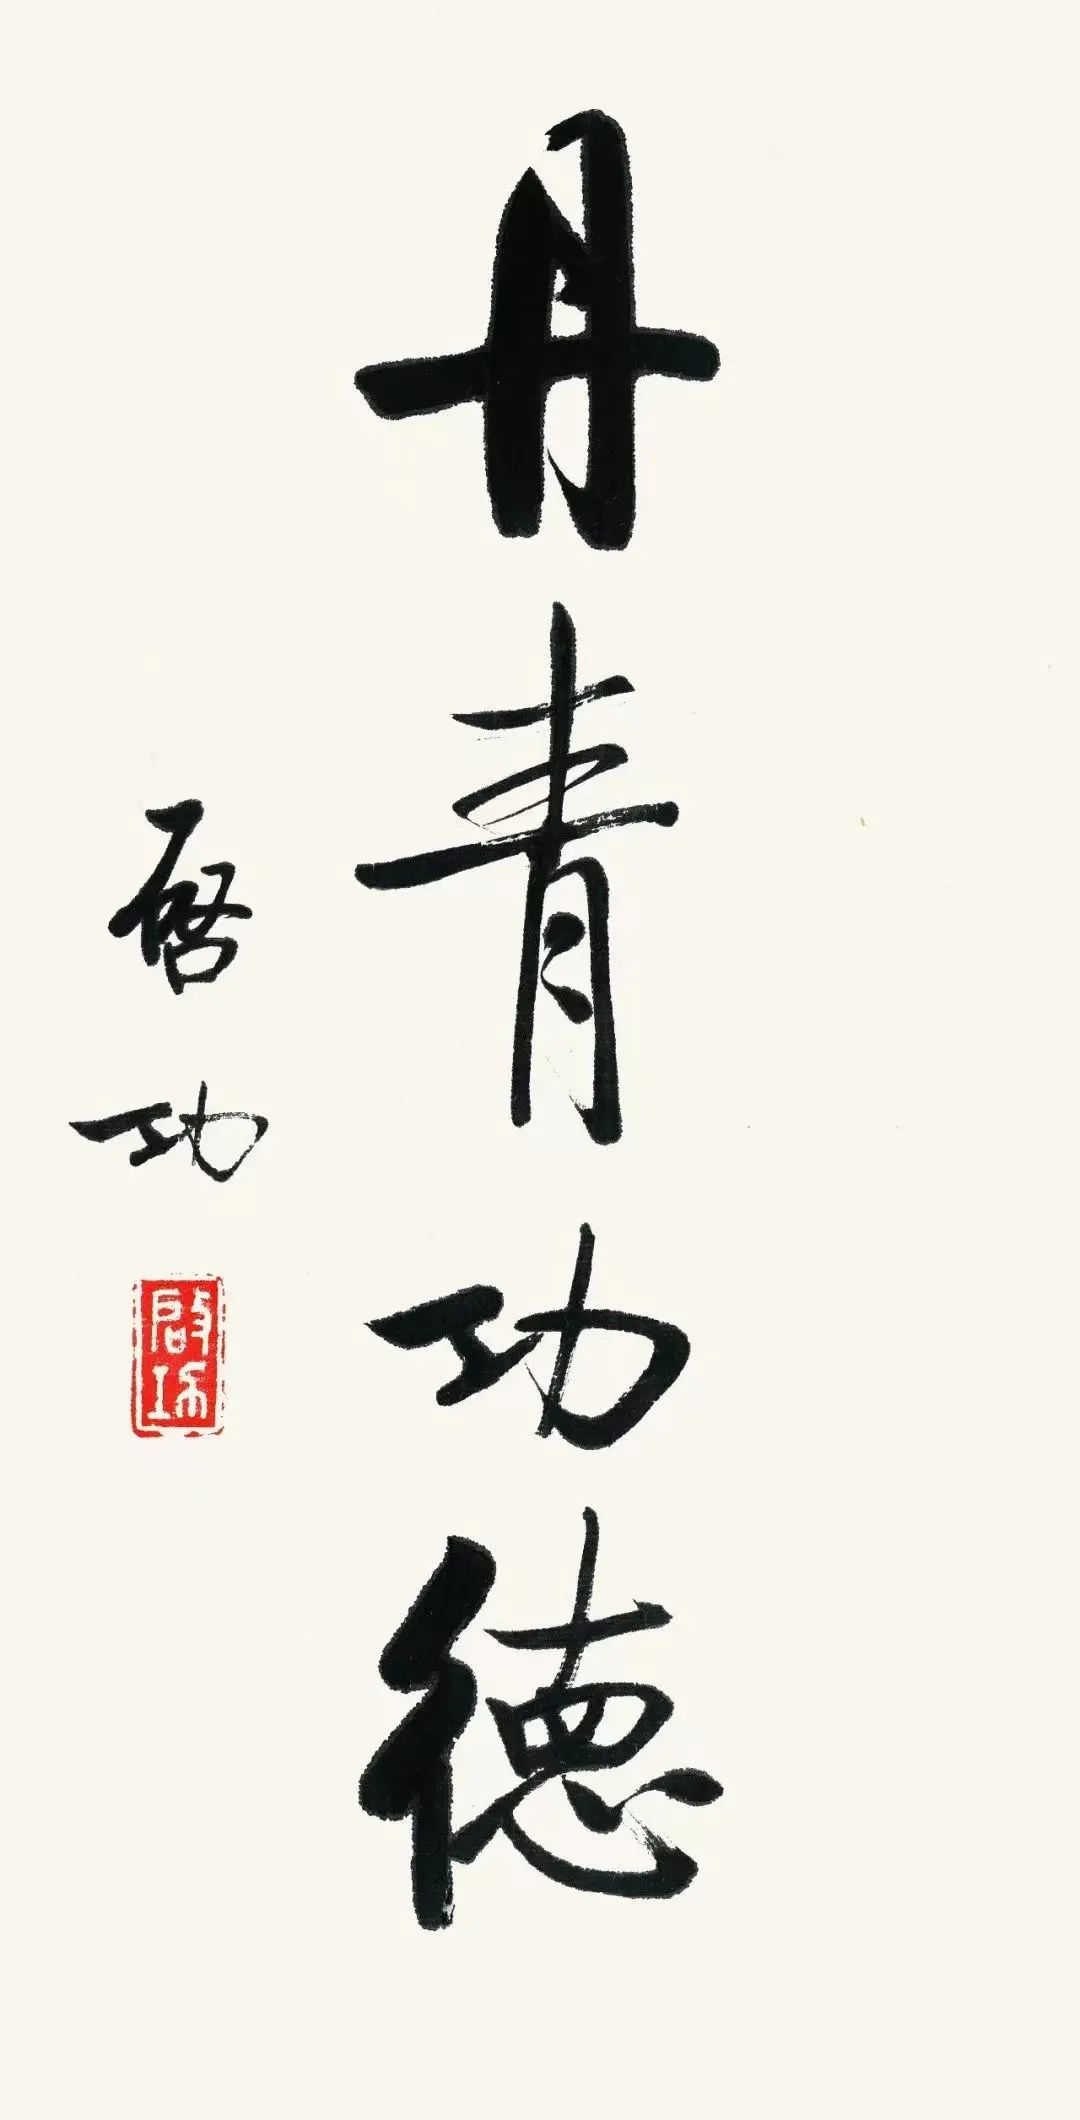 丹青功德
启功
启功